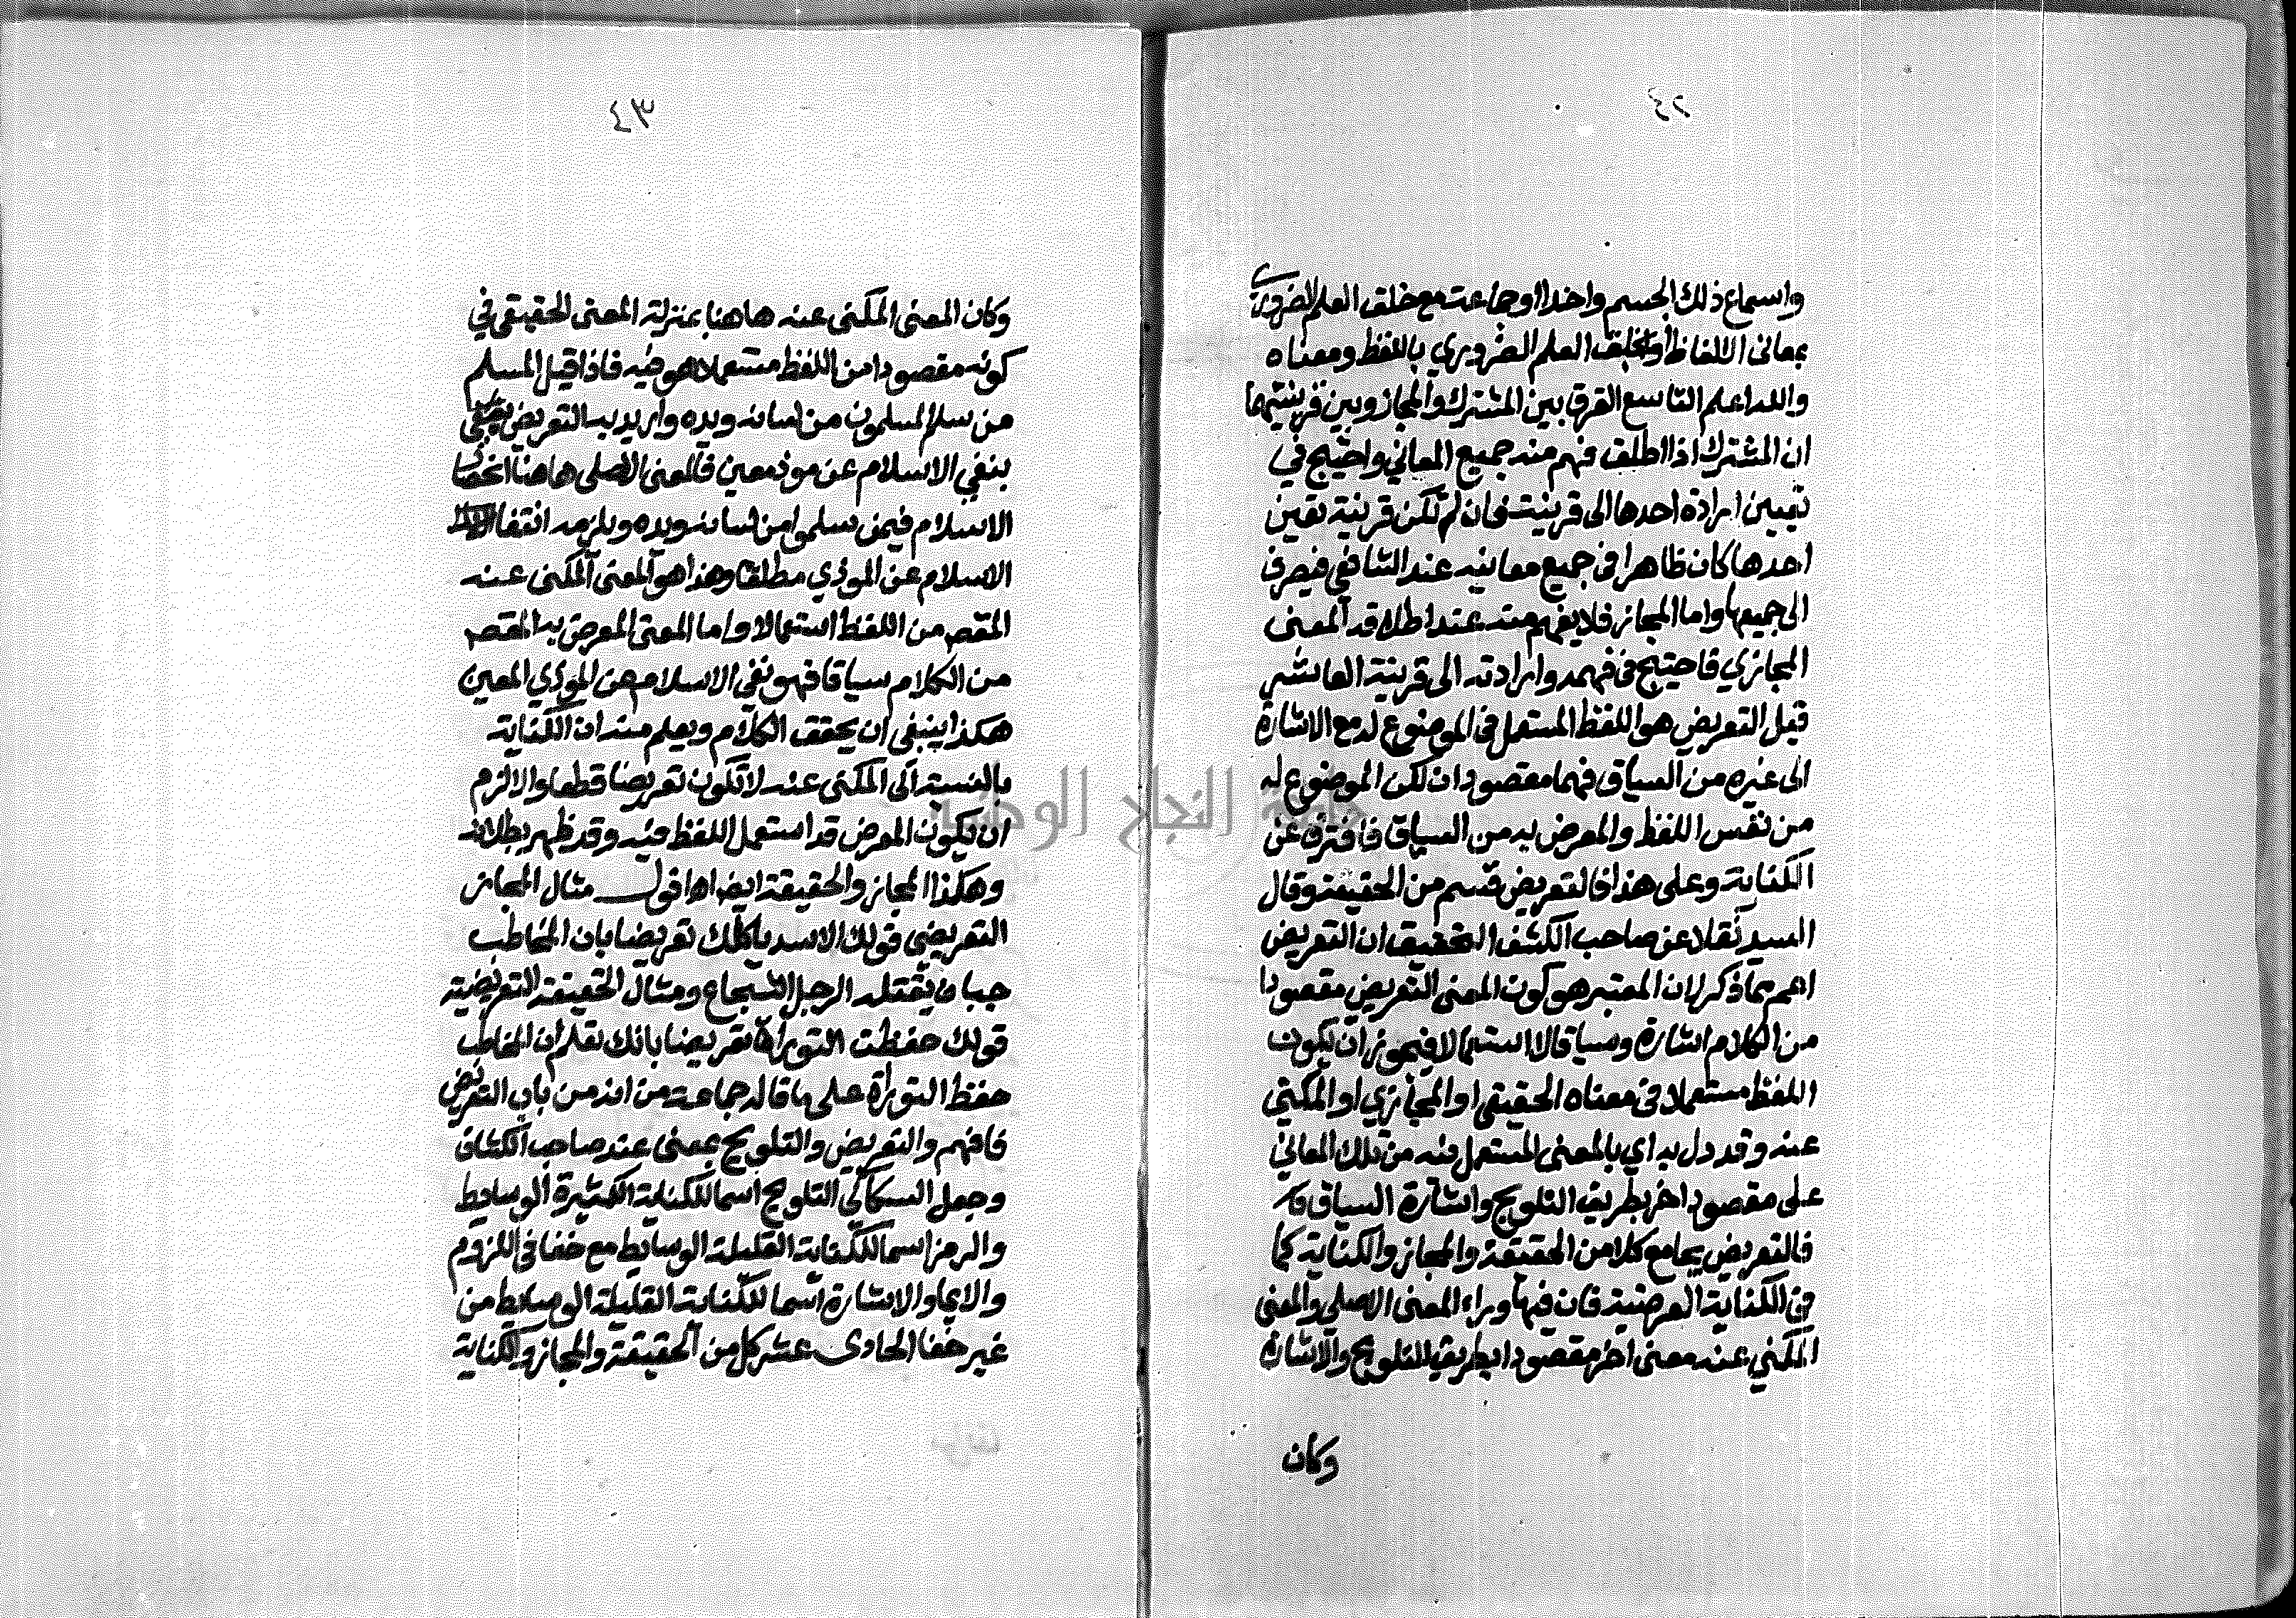 ٤٢
واسماع ذلك الجسم واحدا او جماعة مع خلق العلم الضروري
بمعانى الالفاظ او بخلق العلم الضروري باللفظ ومعناه
والله اعلم التاسع الفرق بين المشترك والمجاز وبين قرينتيهما
ان المشترك اذا اطلق فهم منه جميع المعاني واحتيج في
تعيين ارادة احدها الى قرينة فان لم تكن قرينة تعين
احدها كان ظاهرا في جميع معانيه عند الشافعي فيصرف
الى جميعها واما المجاز فلا يفهم منه عند اطلاقه المعنى
المجازي فاحتيج في فهمه وارادته الى قرينة العاشر
قيل التعريض هو اللفظ المستعمل في الموضوع له مع الاشارة
الى غيره من السياق فهما مقصودان لكن الموضوع له
من نفس اللفظ والمعرض به من السياق فافترق عن
الكناية وعلى هذا فالتعريض قسم من الحقيقة وقال
السيد نقلا عن صاحب الكشف التحقيق ان التعريض
اعم مما ذكر لان المعتبر هو كون المعنى التعريض مقصودا
من الكلام اشارة وسياقا لا استعمالا فيجوز ان يكون
اللفظ مستعملا في معناه الحقيقى او المجازي او المكني
عنه وقد دل به اي بالمعنى المستعمل فيه من تلك المعاني
على مقصود اخر بطريق التلويح واشارة السياق
فالتعريض يجامع كلا من الحقيقة والمجاز والكناية كما
في الكناية العرضية فان فيها وراء المعنى الاصلى والمعنى
المكني عنه معنى اخر مقصودا بطريق التلويح والاشارة
وكان
٤٣
وكان المعنى المكنى عنه هاهنا بمنزلة المعنى الحقيقى في
كونه مقصودا من اللفظ مستعملا هو فيه فاذا قيل المسلم
من سلم المسلمون من لسانه ويده واريد به التعريض
بنفي الاسلام عن موذ معين فالمعنى الاصلى هاهنا انحصار
الاسلام فيمن سلموا من لسانه ويده ويلزمه انتفا
الاسلام عن الموذي مطلقا وهذا هو المعنى المكنى عنه
المقصم من اللفظ استعمالا واما المعنى المعرض به المقصم
من الكلام سياقا فهو نفى الاسلام عن الموذي المعين
هكذا ينبغى ان يحقق الكلام ويعلم منه ان الكناية
بالنسبة الى المكنى عنه لا تكون تعريضا قطعا والا لزم
ان يكون المعرض قد استعمل اللفظ فيه وقد ظهر بطلانه
وهكذا المجاز والحقيقة ايضا اه اقول مثال المجاز
التعريضي قولك الاسد ياكلك تعريضا بان المخاطب
جبان يقتله الرجل الشجاع ومثال الحقيقة التعريضية
قولك حفظت التوراة تعريضا بانك تعلم ان المخاطب
حفظ التوراة على ما قاله جماعة من انه من باب التعريض
فافهم والتعريض والتلويح بمعنى عند صاحب الكشاف
وجعل السكاكي التلويح اسما للكناية الكثيرة الوسايط
والرمز اسما للكناية القليلة الوسايط مع خفا في اللزوم
والايما والاشارة اسما للكناية القليلة الوسايط من
غير خفا الحادى عشر كل من الحقيقة والمجاز والكناية
جامعة النجاح الوطنية